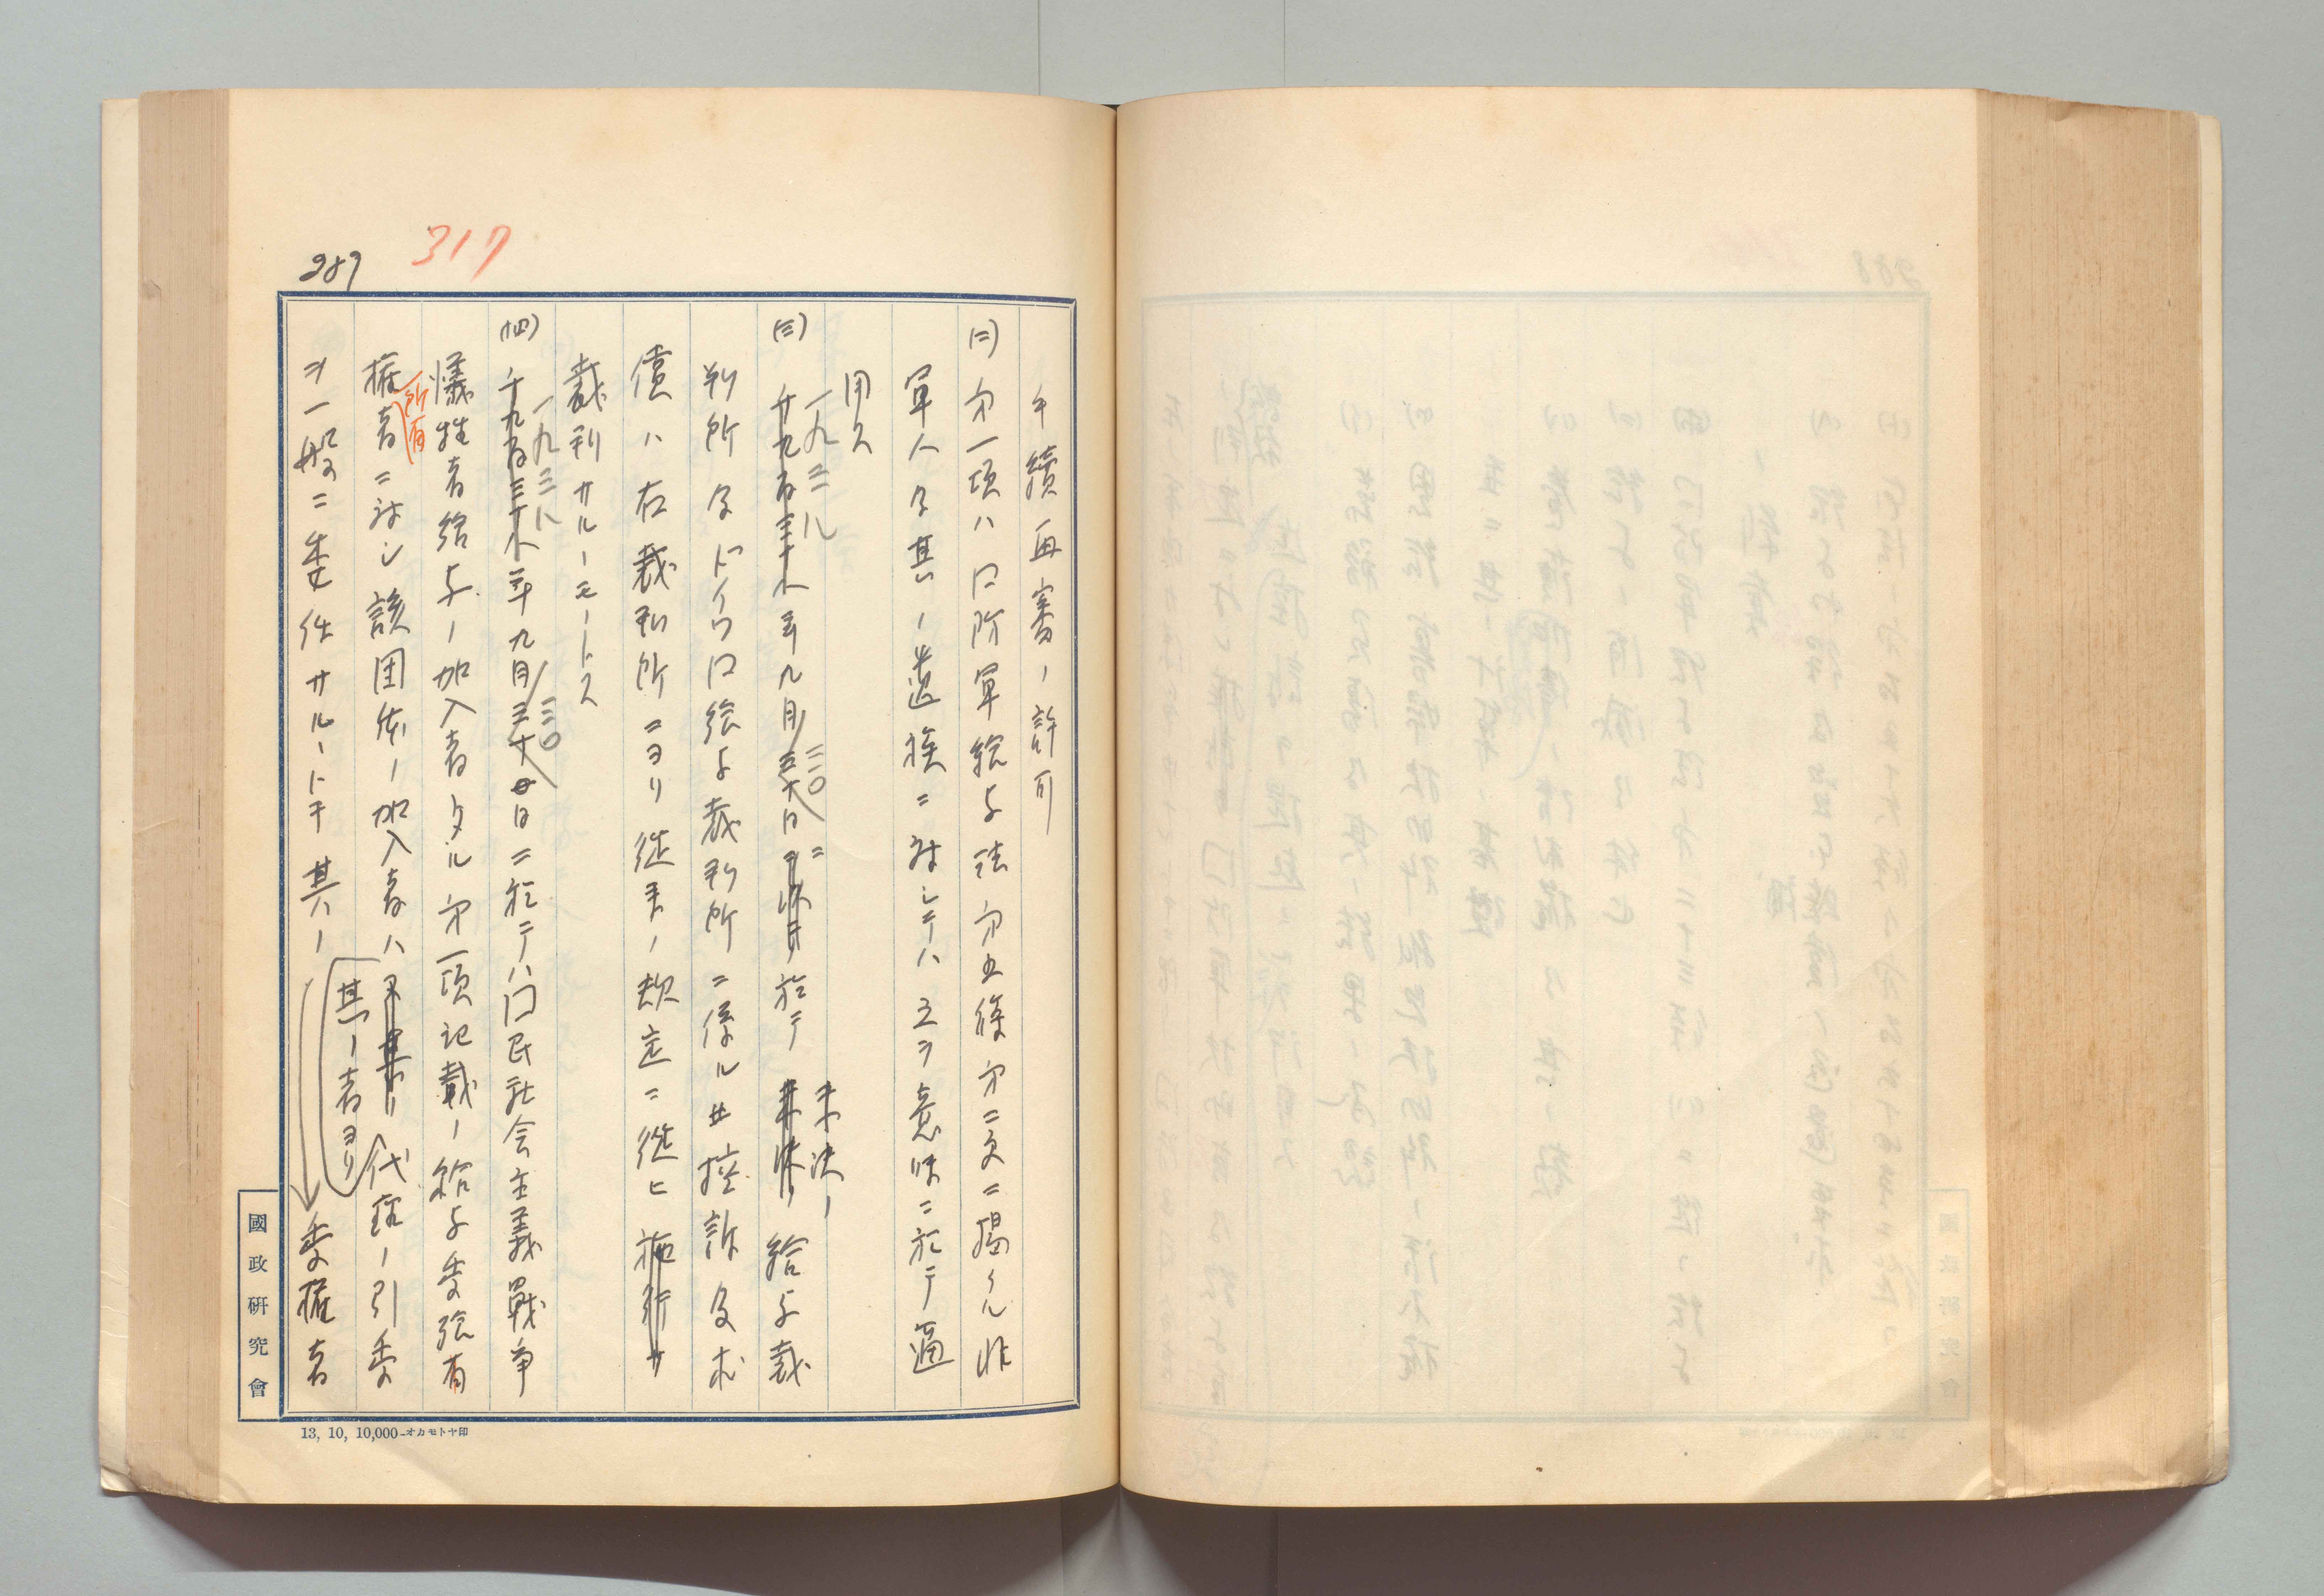 317
287
手續再審ノ許可
(二) 第一項ハ国防軍給与法第五條第二文ニ揚クル非
軍人及其ノ遺族ニ対シテハ之ヲ意味ニ於テ適
用ス
(三) 一九三八年九月三〇日ニ於テ未決ノ給与裁
判所及ドイツ国給与裁判所ニ係ル控訴及求
償ハ右裁判所ニヨリ從来ノ規定ニ從ヒ
裁判サルルモノトス
(四) 一九三八年九月三〇日ニ於テハ国民社会主義戰争
犠牲者給与ノ加入者タル第一項記載ノ給与受領
權所有者ニ対シ該団体ノ加入者ハ代理ノ引受
ヲ一般ニ委任サルルトキ其ノ者ヨリ其ノ受權者
國政研究會
13, 10, 10,000-オカモトヤ印